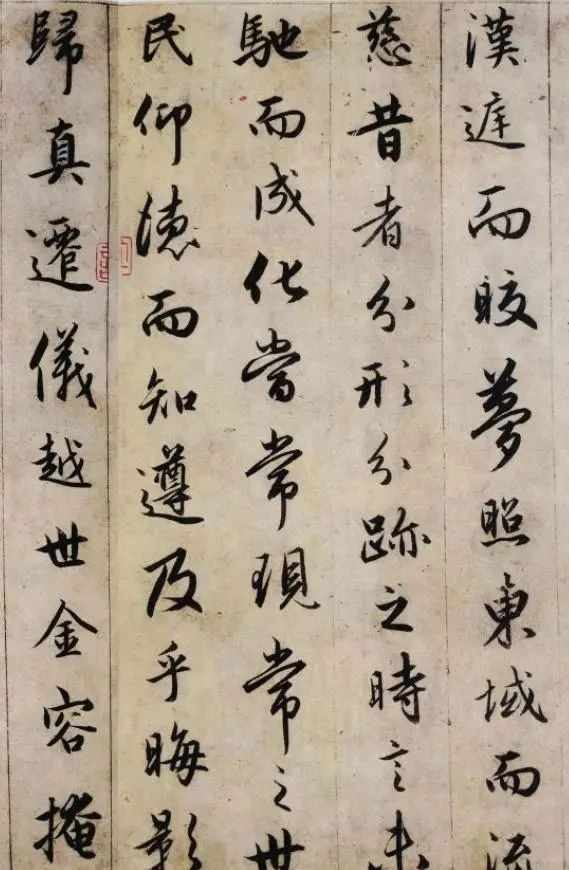 漢庭而皎夢照東域而流
慈昔者分形分跡之時言未
馳而成化當常現常之世
民仰德而知遵及乎晦影
歸真遷儀越世金容掩